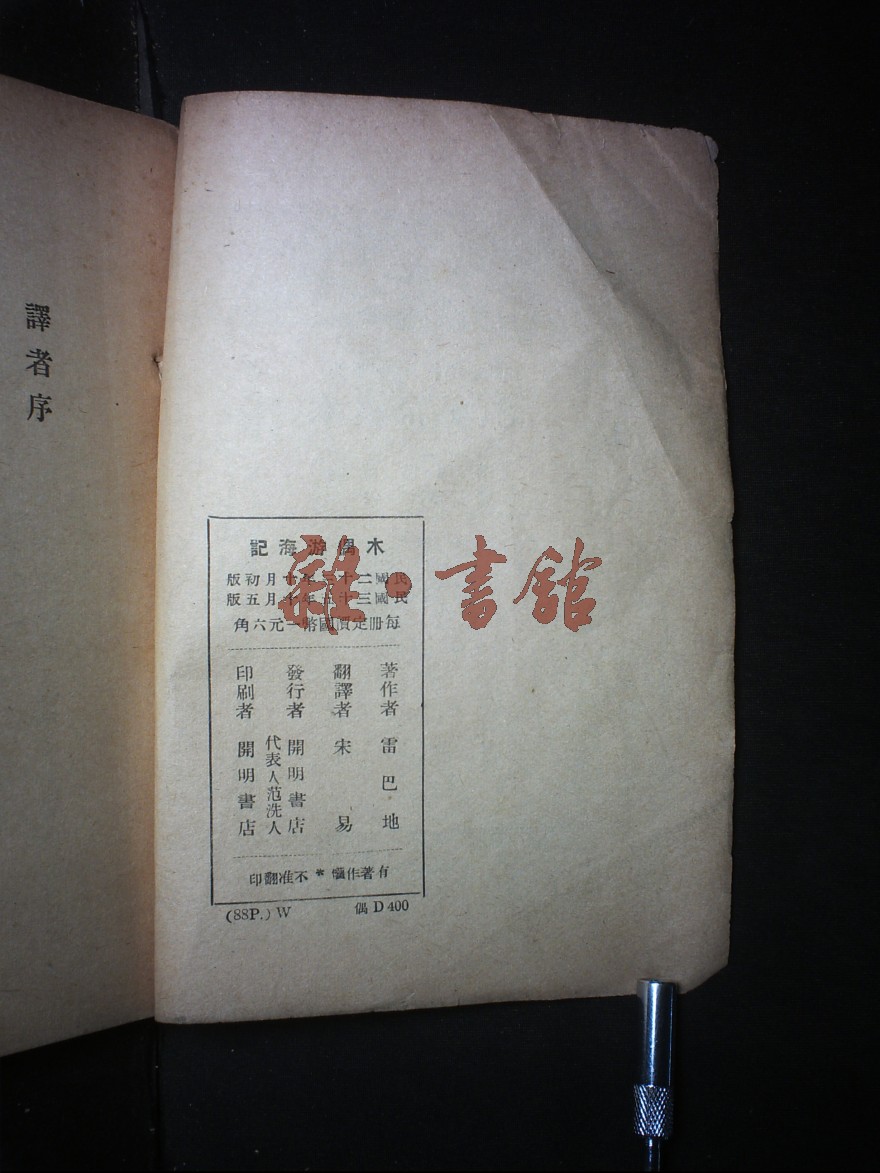 木偶游海記
民國二十三年十月初版
民國三十五年十月五版
每冊定價國幣一元六角
著作者 雷巴地
翻譯者 宋易
發行者 開明書店
代表人范洗人
印刷者 開明書店
有著作權*不准翻印
(88P.) W 偶 D 400
譯者序
雜·書館